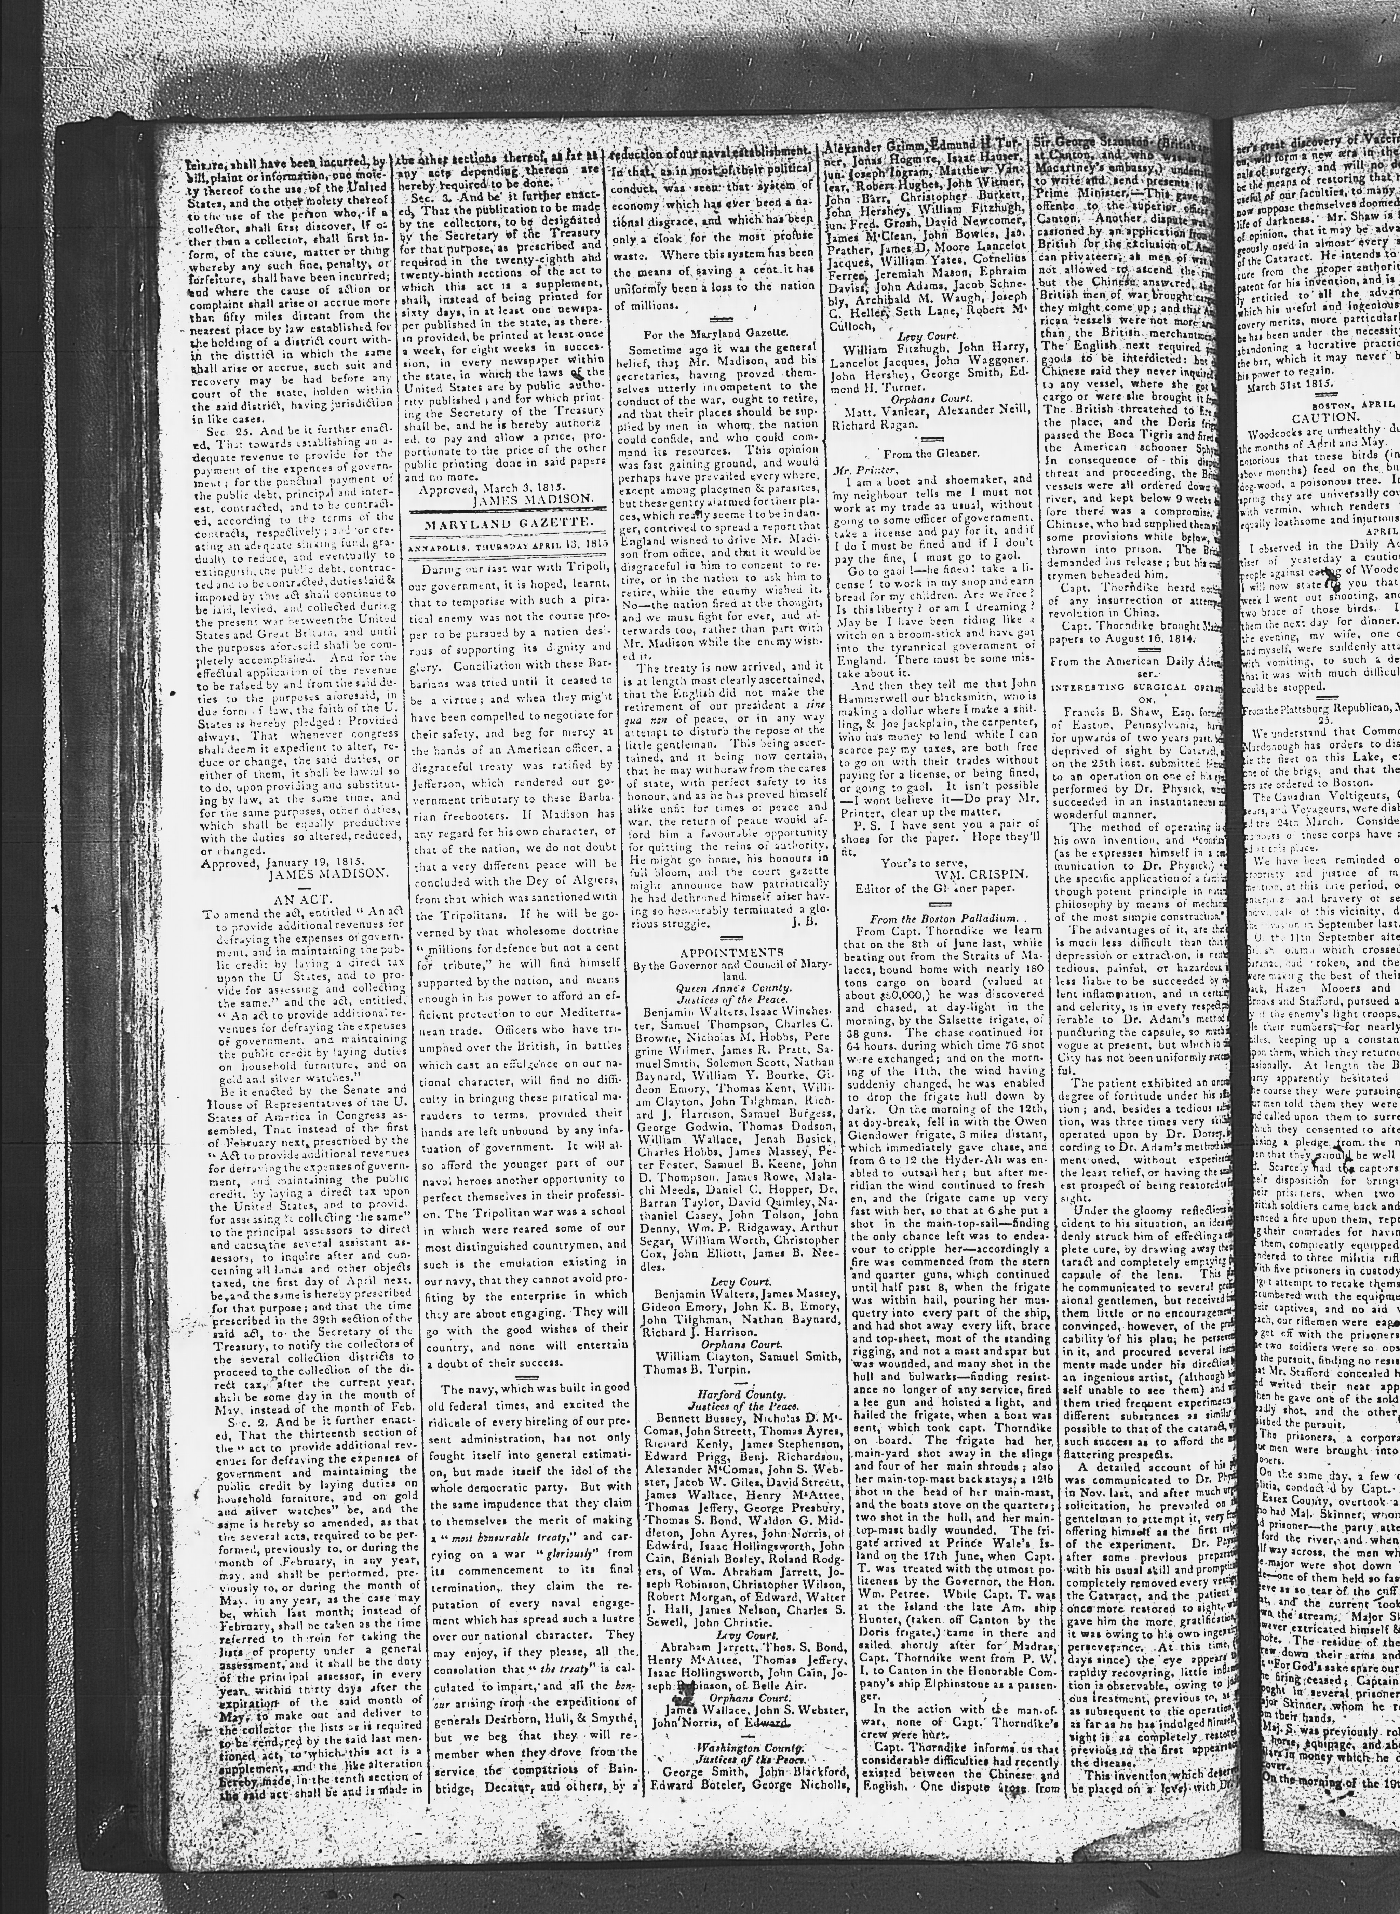 feiture, shall have been incurred, by
bill, plaint or information, one moie-
ty thereof to the use of the United
States, and the other moiety thereof
to the use of the person who, if a
collector, shall first discover, if o-
ther than a collector, shall first in-
form, of the cause, matter or thing
whereby any such fine, penalty, or
forfeiture, shall have been incurred;
and where the cause of action or
complaint shall arise or accrue more
than fifty miles distant from the
nearest place by law established for
the holding of a district court with-
in the district in which the same
shall arise or accrue, such suit and
recovery may be had before any
court of the state, holden within
the said district, having jurisdiction
in like cases.
Sec. 25. And be it further enact-
ed, That towards establishing an a-
dequate revenue to provide for the
payment of the expences of govern-
ment; for the punctual payment of
the public debt, principal and inter-
est, contracted, and to be contract-
ed, according to the terms of the
contracts, respectively; and for cre-
ating an adequate sinking fund, gra-
dually to reduce, and eventually to
extinguish, the public debt, contrac-
ted and to be contracted, duties laid &
imposed by this act shall continue to
be laid, levied, and collected during
the present war between the United
States and Great Britain, and until
the purposes aforesaid shall be com-
pletely accomplished. And for the
effectual application of the revenue
to be raised by and from the said du-
ties to the purposes aforesaid, in
due form of law, the faith of the U.
States is hereby pledged: Provided
always, That whenever congress
shall deem it expedient to alter, re-
duce or change, the said duties, or
either of them, it shall be lawful so
to do, upon providing and substitut-
ing by law, at the same time, and
for the same purposes, other duties,
which shall be equally productive
with the duties so altered, reduced,
or changed.
Approved, January 19, 1815.
JAMES MADISON.
AN ACT.
To amend the act, entitled "An act
to provide additional revenues for
defraying the expenses of govern-
ment, and in maintaining the pub-
lic credit by laying a direct tax
upon the U. States, and to pro-
vide for assessing and collecting
the same," and the act, entitled,
"An act to provide additional re-
venues for defraying the expenses
of government, and maintaining
the public credit by laying duties
on household furniture, and on
gold and silver watches."
Be it enacted by the Senate and
House of Representatives of the U.
States of America in Congress as-
sembled, That instead of the first
of February next, prescribed by the
"Act to provide additional revenues
for defraying the expenses of govern-
ment, and maintaining the public
credit, by laying a direct tax upon
the United States, and to provid.
for assessing & collecting the same"
to the principal assessors to direct
and cause the several assistant as-
sessors, to inquire after and con-
cerning all lands and other objects
taxed, the first day of April next,
be, and the same is hereby prescribed
for that purpose; and that the time
prescribed in the 39th section of the
said act, to the Secretary of the
Treasury, to notify the collectors of
the several collection districts to
proceed to the collection of the di-
rect tax, after the current year,
shall be some day in the month of
May, instead of the month of Feb.
Sec. 2. And be it further enact-
ed, That the thirteenth section of
the "act to provide additional rev-
enues for defraying the expenses of
government and maintaining the
public credit by laying duties on
household furniture, and on gold
and silver watches" be, and the
same is hereby so amended, as that
the several acts, required to be per-
formed, previously to, or during the
month of February, in any year,
may, and shall be performed, pre-
viously to, or during the month of
May, in any year, as the case may
be, which last month; instead of
February, shall be taken as the time
referred to therein for taking the
lists of property under a general
assessment, and it shall be the duty
of the principal assessor, in every
year, within thirty days after the
expiration of the said month of
May, to make out and deliver to
the collector the lists as is required
to be rendered by the said last men-
tioned act, to which this act is a
supplement, and the like alteration
hereby made, in the tenth section of
the said act shall be and is made in
the other sections thereof, as far as
any acts depending thereon are
hereby required to be done.
Sec. 3. And be it further enact-
ed, That the publication to be made
by the collectors, to be designated
by the Secretary of the Treasury
for that purpose, as prescribed and
required in the twenty-eighth and
twenty-ninth sections of the act to
which this act is a supplement,
shall, instead of being printed for
sixty days, in at least one newspa-
per published in the state, as there-
in provided, be printed at least once
a week, for eight weeks in succes-
sion, in every newspaper within
the state, in which the laws of the
United States are by public autho-
rity published; and for which print-
ing the Secretary of the Treasury
shall be, and he is hereby authoriz-
ed, to pay and allow a price, pro-
portionate to the price of the other
public printing done in said papers
and no more.
Approved, March 3, 1815.
JAMES MADISON.
MARYLAND GAZETTE.
ANNAPOLIS, THURSDAY APRIL 13, 1815
During our last war with Tripoli,
our government, it is hoped, learnt,
that to temporise with such a pira-
tical enemy was not the course pro-
per to be pursued by a nation desi-
rous of supporting its dignity and
glory. Conciliation with these Bar-
barians was tried until it ceased to
be a virtue; and when they might
have been compelled to negotiate for
their safety, and beg for mercy at
the hands of an American officer, a
disgraceful treaty was ratified by
Jefferson, which rendered our go-
vernment tributary to these Barba-
rian freebooters. If Madison has
any regard for his own character, or
that of the nation, we do not doubt
that a very different peace will be
concluded with the Dey of Algiers,
from that which was sanctioned with
the Tripolitans. If he will be go-
verned by that wholesome doctrine
"millions for defence but not a cent
for tribute," he will find himself
supported by the nation, and means
enough in his power to afford an ef-
ficient protection to our Mediterra-
nean trade. Officers who have tri-
umphed over the British, in battles
which cast an effulgence on our na-
tional character, will find no diffi-
culty in bringing these piratical ma-
rauders to terms, provided their
hands are left unbound by any infa-
tuation of government. It will al-
so afford the younger part of our
naval heroes another opportunity to
perfect themselves in their professi-
on. The Tripolitan war was a school
in which were reared some of our
most distinguished countrymen, and
such is the emulation existing in
our navy, that they cannot avoid pro-
fiting by the enterprise in which
they are about engaging. They will
go with the good wishes of their
country, and none will entertain
a doubt of their success.
The navy, which was built in good
old federal times, and excited the
ridicule of every hireling of our pre-
sent administration, has not only
fought itself into general estimati-
on, but made itself the idol of the
whole democratic party. But with
the same impudence that they claim
to themselves the merit of making
a "most honourable treaty," and car-
rying on a war "gloriously" from
its commencement to its final
termination, they claim the re-
putation of every naval engage-
ment which has spread such a lustre
over our national character. They
may enjoy, if they please, all the
consolation that "the treaty" is cal-
culated to impart, and all the hon-
our arising from the expeditions of
generals Dearborn, Hull, & Smythe,
but we beg that they will re-
member when they drove from the
service the compatriots of Bain-
bridge, Decatur, and others, by a
reduction of our naval establishment.
In that, as in most of their political
conduct, was seen that system of
economy which has ever been a na-
tional disgrace, and which has been
only a cloak for the most profuse
waste. Where this system has been
the means of saving a cent it has
uniformly been a loss to the nation
of millions.
For the Maryland Gazette.
Sometime ago it was the general
belief, that Mr. Madison, and his
secretaries, having proved them-
selves utterly incompetent to the
conduct of the war, ought to retire,
and that their places should be sup-
plied by men in whom the nation
could confide, and who could com-
mand its resources. This opinion
was fast gaining ground, and would
perhaps have prevailed every where,
except among placemen & parasites,
but these gentry alarmed for their pla-
ces, which really seemed to be in dan-
ger, contrived to spread a report that
England wished to drive Mr. Madi-
son from office, and that it would be
disgraceful in him to consent to re-
tire, or in the nation to ask him to
retire, while the enemy wished it.
No—the nation fired at the thought,
and we must fight for ever, and af-
terwards too, rather than part with
Mr. Madison while the enemy wish-
ed it.
The treaty is now arrived, and it
is at length most clearly ascertained,
that the English did not make the
retirement of our president a sine
qua non of peace, or in any way
attempt to disturb the repose of the
little gentleman. This being ascer-
tained, and it being now certain,
that he may withdraw from the cares
of state, with perfect safety to its
honour, and as he has proved himself
alike unfit for times of peace and
war, the return of peace would af-
ford him a favourable opportunity
for quitting the reins of authority.
He might go home, his honours in
full bloom, and the court gazette
might announce how patriotically
he had dethroned himself after hav-
ing so honourably terminated a glo-
rious struggle. J. B.
APPOINTMENTS
By the Governor and Council of Mary-
land.
Queen Anne's County.
Justices of the Peace.
Benjamin Walters, Isaac Winches-
ter, Samuel Thompson, Charles C.
Browne, Nicholas M. Hobbs, Pere
grine Wilmer, James R. Pratt, Sa-
muel Smith, Solomon Scott, Nathan
Baynard, William Y. Bourke, Gi-
deon Emory, Thomas Kent, Willi-
am Clayton, John Tilghman, Rich-
ard J. Harrison, Samuel Burgess,
George Godwin, Thomas Dodson,
William Wallace, Jenah Busick,
Charles Hobbs, James Massey, Pe-
ter Foster, Samuel B. Keene, John
D. Thompson, James Rowe, Mala-
chi Meeds, Daniel C. Hopper, Dr.
Barran Taylor, David Quimley, Na-
thaniel Casey, John Tolson, John
Denny, Wm. P. Ridgaway, Arthur
Segar, William Worth, Christopher
Cox, John Elliott, James B. Nee-
dles.
Levy Court.
Benjamin Walters, James Massey,
Gideon Emory, John K. B. Emory,
John Tilghman, Nathan Baynard,
Richard J. Harrison.
Orphans Court.
William Clayton, Samuel Smith,
Thomas B. Turpin.
Harford County.
Justices of the Peace.
Bennett Bussey, Nicholas D. M'-
Comas, John Streett, Thomas Ayres,
Richard Kenly, James Stephenson,
Edward Prigg, Benj. Richardson,
Alexander M'Comas, John S. Web-
ster, Jacob W. Giles, David Streett,
James Wallace, Henry M'Atee,
Thomas Jeffery, George Presbury,
Thomas S. Bond, Waldon G. Mid-
dleton, John Ayres, John Norris, of
Edward, Isaac Hollingsworth, John
Cain, Beniah Bosley, Roland Rodg-
ers, of Wm. Abraham Jarrett, Jo-
seph Robinson, Christopher Wilson,
Robert Morgan, of Edward, Walter
J. Hall, James Nelson, Charles S.
Sewell, John Christie.
Levy Court.
Abraham Jarrett, Thos. S. Bond,
Henry M'Atee, Thomas Jeffery,
Isaac Hollingsworth, John Cain, Jo-
seph Robinson, of Belle Air.
Orphans Court.
James Wallace, John S. Webster,
John Norris, of Edward.
Washington County.
Justices of the Peace.
George Smith, John Blackford,
Edward Boteler, George Nicholls,
Alexander Grimm, Edmund H. Tur-
ner, Jonas Hogmire, Isaac Hauser,
jun. Joseph Ingram, Matthew Van-
lear, Robert Hughes, John Witmer,
John Barr, Christopher Burkett,
John Hershey, William Fitzhugh,
jun. Fred. Grosh, David Newcomer,
James M'Clean, John Bowles, Jas.
Prather, James D. Moore Lancelot
Jacques, William Yates, Cornelius
Ferree, Jeremiah Mason, Ephraim
Davis, John Adams, Jacob Schne-
bly, Archibald M. Waugh, Joseph
C. Heller, Seth Lane, Robert M'
Culloch,
Levy Court.
William Fitzhugh, John Harry,
Lancelot Jacques, John Waggoner,
John Hershey, George Smith, Ed-
mond H. Turner.
Orphans Court.
Matt. Vanlear, Alexander Neill,
Richard Ragan.
From the Gleaner.
Mr. Printer,
I am a boot and shoemaker, and
my neighbour tells me I must not
work at my trade as usual, without
going to some officer of government,
take a license and pay for it, and if
I do I must be fined and if I don't
pay the fine, I must go to gaol.
Go to gaol!—he fined! take a li-
cense! to work in my shop and earn
bread for my children. Are we free?
Is this liberty? or am I dreaming?
May be I have been riding like a
witch on a broom-stick and have got
into the tyrannical government of
England. There must be some mis-
take about it.
And then they tell me that John
Hammerwell our blacksmith, who is
making a dollar where I make a shil-
ling, & Joe Jackplain, the carpenter,
who has money to lend while I can
scarce pay my taxes, are both free
to go on with their trades without
paying for a license, or being fined,
or going to gaol. It isn't possible
—I wont believe it—Do pray Mr.
Printer, clear up the matter.
P. S. I have sent you a pair of
shoes for the paper. Hope they'll
fit.
Your's to serve,
WM. CRISPIN.
Editor of the Gleaner paper.
From the Boston Palladium.
From Capt. Thorndike we learn
that on the 8th of June last, while
beating out from the Straits of Ma-
lacca, bound home with nearly 180
tons cargo on board (valued at
about $60,000,) he was discovered
and chased, at day-light in the
morning, by the Salsette frigate, of
38 guns. The chase continued for
64 hours, during which time 76 shot
were exchanged; and on the morn-
ing of the 11th, the wind having
suddenly changed, he was enabled
to drop the frigate hull down by
dark. On the morning of the 12th,
at day-break, fell in with the Owen
Glendower frigate, 3 miles distant,
which immediately gave chase, and
from 6 to 12 the Hyder-Ali was en-
abled to outsail her; but after me-
ridian the wind continued to fresh
en, and the frigate came up very
fast with her, so that at 6 she put a
shot in the main-top-sail—finding
the only chance left was to endea-
vour to cripple her—accordingly a
fire was commenced from the stern
and quarter guns, which continued
until half past 8, when the frigate
was within hail, pouring her mus-
quetry into every part of the ship,
and had shot away every lift, brace
and top-sheet, most of the standing
rigging, and not a mast and spar but
was wounded, and many shot in the
hull and bulwarks—finding resist-
ance no longer of any service, fired
a lee gun and hoisted a light, and
hailed the frigate, when a boat was
sent, which took capt. Thorndike
on board. The frigate had her
main-yard shot away in the slings
and four of her main shrouds; also
her main-top-mast backstays; a 12lb
shot in the head of her main-mast,
and the boats stove on the quarters;
two shot in the hull, and her main-
top-mast badly wounded. The fri-
gate arrived at Prince Wale's Is-
land on the 17th June, when Capt.
T. was treated with the utmost po-
liteness by the Governor, the Hon.
Wm. Petree. While Capt. T. was
at the Island the late Am. ship
Hunter, (taken off Canton by the
Doris frigate,) came in there and
sailed shortly after for Madras,
Capt. Thorndike went from P. W.
I. to Canton in the Honorable Com-
pany's ship Elphinstone as a passen-
ger.
In the action with the man-of-
war, none of Capt. Thorndike's
crew were hurt.
Capt. Thorndike informs us that
considerable difficulties had recently
existed between the Chinese and
English. One dispute arose from
Sir George Staunton (British
at Canton, and who was in
Macartney's embassy,)
to write and send presents to
Prime Minister.—This gave
offence to the superior officer
Canton. Another dispute was
casioned by an application from
British for the exclusion of Ame
can privateers; as men of war
not allowed to ascend the
but the Chinese answered, the
British men of war brought car
they might come up; and that
rican vessels were not more
than the British merchantmen
The English next required
goods to be interdicted: but
Chinese said they never inquired
to any vessel, where she got
cargo or were she brought it
The British threatened to
the place, and the Doris fri
passed the Boca Tigris and fired
the American schooner Sphy
In consequence of this disp
threat and proceeding, the Bri
vessels were all ordered down
river, and kept below 9 weeks
fore there was a compromise.
Chinese, who had supplied them
some provisions while below,
thrown into prison. The Bri
demanded his release; but his
trymen beheaded him.
Capt. Thorndike heard noth
of any insurrection or attemp
revolution in China.
Capt. Thorndike brought
papers to August 16, 1814.
From the American Daily Adver
ser.
INTERESTING SURGICAL OPERA
ON.
Francis B. Shaw, Esq. former
of Easton, Pennsylvania, hav
for upwards of two years past
deprived of sight by Cataract,
on the 25th inst. submitted him
to an operation on one of his eyes
performed by Dr. Physick, w
succeeded in an instantaneous and
wonderful manner.
The method of operating is
his own invention, and "consis
(as he expresses himself in a com
munication to Dr. Physick,)
the specific application of a
though potent principle in
philosophy by means of mechan
of the most simple construction."
The advantages of it, are that
is much less difficult than that
depression or extraction, is
tedious, painful, or hazardous
less liable to be succeeded by
lent inflammation, and in
and celerity, is in every respect
ferable to Dr. Adam's method
puncturing the capsule, so much
vogue at present, but which in
City has not been uniformly succ
ful.
The patient exhibited an
degree of fortitude under his
tion; and, besides a tedious
tion, was three times very
operated upon by Dr. Dorsey,
cording to Dr. Adam's method
ment oned, without experien
the least relief, or having the
est prospect of being restored to
sight.
Under the gloomy reflections
cident to his situation, an idea
denly struck him of effecting a
plete cure, by drawing away the
taract and completely emptying
capsule of the lens. This
he communicated to several
sional gentlemen, but received
them little or no encouragement
convinced, however, of the
cability of his plan; he persever
in it, and procured several
ments made under his direction
an ingenious artist, (although
self unable to see them) and
them tried frequent experiments
different substances as similar
possible to that of the cataract,
such success as to afford the
flattering prospects.
A detailed account of his
was communicated to Dr. Phy
in Nov. last, and after much
solicitation, he prevailed on
gentelman to attempt it, very
offering himself as the first
of the experiment. Dr. Phy
after some previous prepara
with his usual skill and promp
completely removed every vestige
the Cataract, and the patient
once more restored to sight,
gave him the more gratification
it was owing to his own ingenu
perseverance. At this time,
days since) the eye appears
rapidly recovering, little infla
tion is observable, owing to
ous treatment, previous to, as
as subsequent to the operation
as far as he has indulged himself
sight is as completely restored
previous to the first appearance
the disease.
This invention which deserv
be placed on a level with Dr.
ner's great discovery of Vaccin
on, will form a new æra in the
nals of surgery, and will no
be the means of restoring that
useful of our faculties, to many,
now suppose themselves doomed
life of darkness. Mr. Shaw is
of opinion, that it may be adva
geously used in almost every
of the Cataract. He intends to
cure from the proper authorit
patent for his invention, and is
ly entitled to all the advan
which his useful and ingenious
covery merits, more particular
he has been under the necessit
abandoning a lucrative practic
the bar, which it may never
his power to regain.
March 31st 1815.
BOSTON, APRIL
CAUTION.
Woodcocks are unhealthy du
the months of April and May.
notorious that these birds (in
above months) feed on the
dog-wood, a poisonous tree. In
spring they are universally co
with vermin, which renders
equally loathsome and injurious
APRIL
I observed in the Daily A
tiser of yesterday a caution
people against eating of Woodc
I will now state to you that
week I went out shooting, and
two brace of those birds. I
them the next day for dinner.
the evening, my wife, one
and myself, were suddenly atta
with vomiting, to such a de
that it was with much difficul
could be stopped.
From the Plattsburg Republican,
25.
We understand that Commo
Macdonough has orders to dis
the fleet on this Lake, e
one of the brigs, and that the
ers are ordered to Boston.
The Canadian Voltigeurs,
sears, and Voyageurs, were disb
the 24th March. Conside
numbers of these corps have
ed at this place.
We have been reminded
propriety and justice of m
at this late period, o
and bravery of se
of this vicinity, d
on in September last.
the 11th September afte
which crossed
broken, and the
were making the best of their
ack, Hazen Mooers and
Brooks and Stafford, pursued a
of the enemy's light troops,
their numbers, for nearly
miles, keeping up a constan
upon them, which they returne
asionally. At length the B
any apparently hesitated
the course they were pursuing
our men told them they were
and called upon them to surre
which they consented to afte
taking a pledge from the
n that they should be well
Scarcely had the captors
their disposition for bringi
their prisoners, when two
British soldiers came back and
menced a fire upon them, repr
g their comrades for havin
them, completely equipped
ndered to three militia rifl
With five prisoners in custody
attempt to retake them
numbered with the equipme
their captives, and no aid
ach, our riflemen were eage
get off with the prisoners
the two soldiers were so
the pursuit, finding no resis
at Mr. Stafford concealed h
d writhed their near app
when he gave one of the sold
adly shot, and the other
ished the pursuit.
The prisoners, a corpora
ur men were brought into
oners.
On the same day, a few
litia, conducted by Capt.
Essex County, overtook a
who had Maj. Skinner, whom
a prisoner—the party atte
ford the river, and when
lf way across, the men wh
major were shot down
—one of them held so fas
eve as so tear of the cuff
at, and the current took
wn the stream. Major S
wever extricated himself &
hore. The residue of the
rew down their arms and
"For God's sake spare our
he firing ceased; Captain
ought in several prisoner
ajor Skinner, whom he r
om their hands.
Maj. S. was previously ro
horse, equipage, and abo
llars in money which he d
cover.
On the morning of the 19t